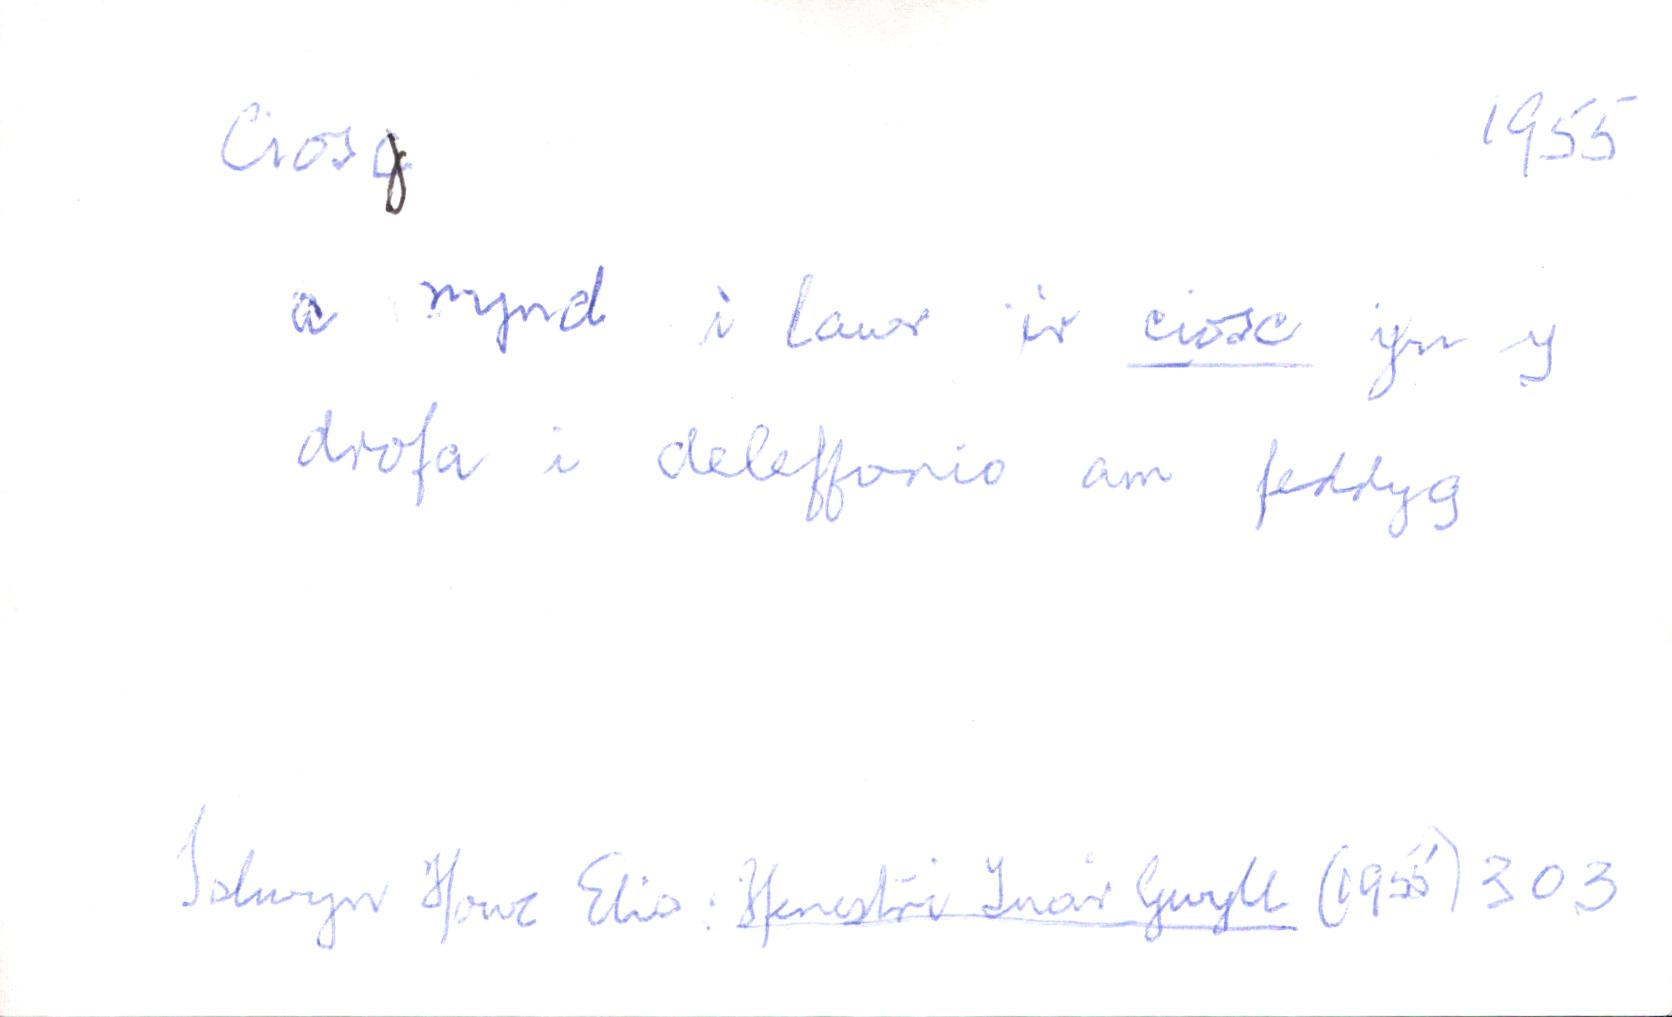 Ciosg 1955
a mynd i lawr i'r ciosc yn y
drofa i deleffonio am feddyg
Islwyn Ffowc Elis: Ffenestri Tua'r Gwyll (1955) 303